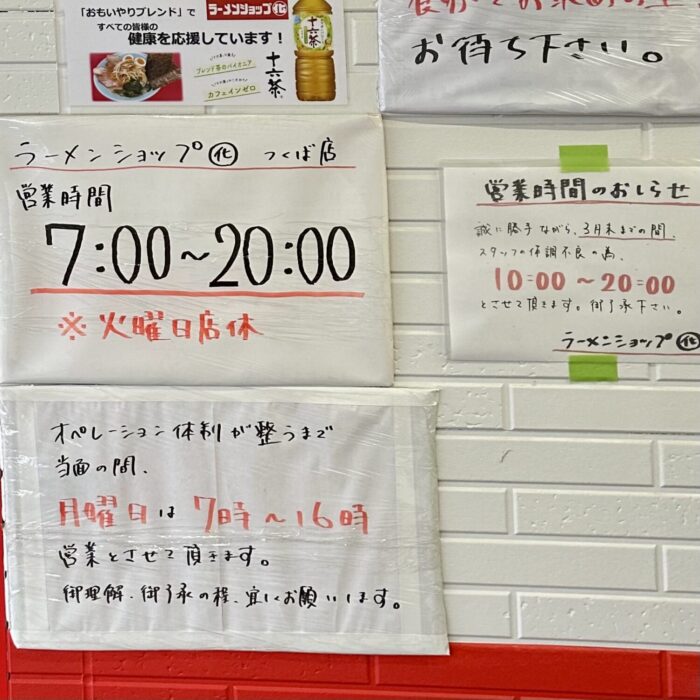 「おもいやりブレンド」で
すべての皆様の
健康を応援しています！
ラーメンショップ㊋
ブレンド茶のパイオニア
カフェインゼロ
十六茶
十六茶
お待ち下さい。
ラーメンショップ 化 つくば店
営業時間
7:00〜20:00
※火曜日店休
営業時間のおしらせ
誠に勝手ながら、3月末までの間、
スタッフの体調不良の為、
10:00〜20:00
とさせて頂きます。御了承下さい。
ラーメンショップ 化
オペレーション体制が整うまで
当面の間、
月曜日は7時〜16時
営業とさせて頂きます。
御理解、御了承の程、宜しくお願いします。